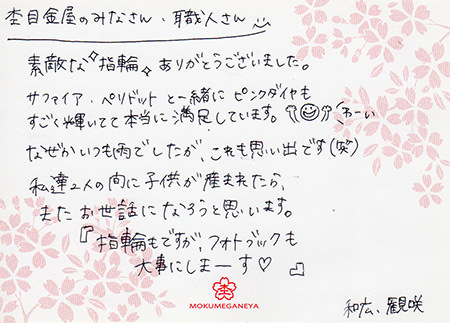 杢目金屋のみなさん、職人さん
素敵な指輪ありがとうございました。
サファイア・ペリドットと一緒にピンクダイヤも
すごく輝いてて本当に満足しています。わーい
なぜかいつも雨でしたが、これも思い出です(笑)
私達2人の間に子供が産まれたら、
またお世話になろうと思います。
『指輪もですが、フォトブックも
大事にしまーす♡』
MOKUMEGANEYA
和広、観咲